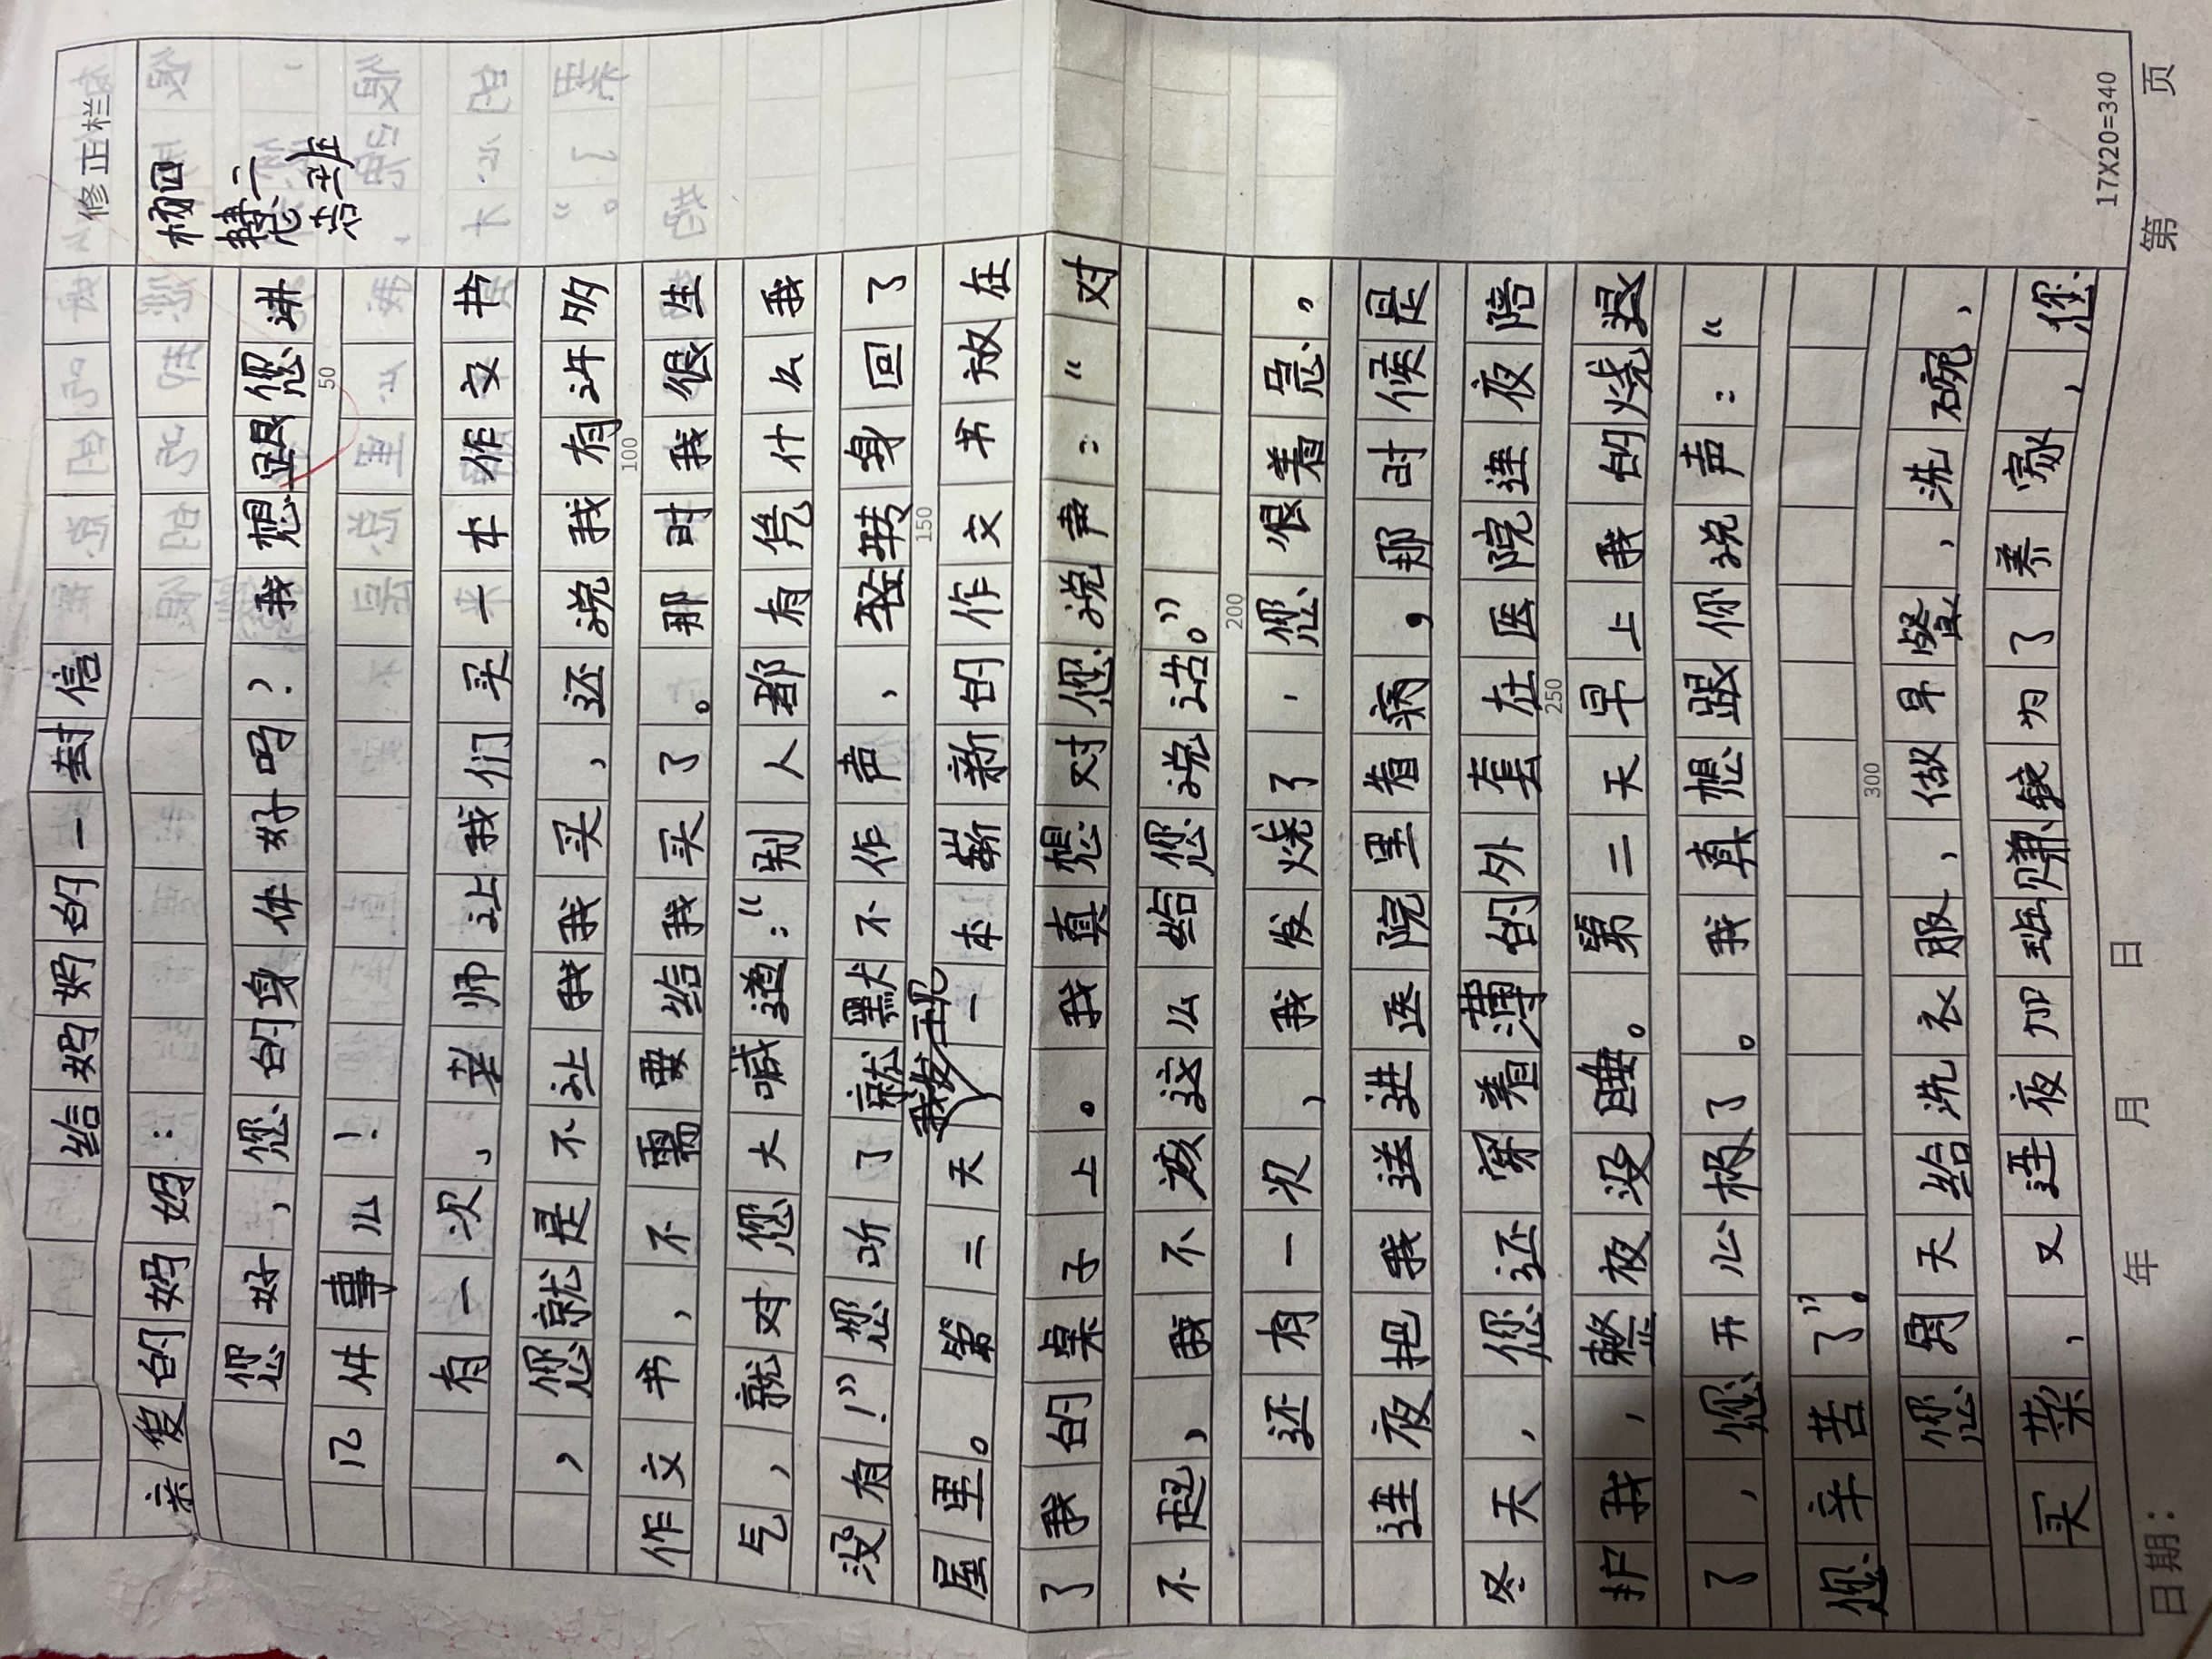 修正栏
杨慧洁
四二班
给妈妈的一封信
亲爱的妈妈:
您好,您的身体好吗?我想跟您讲
几件事儿!
有一次,老师让我们买一本作文书
,您就是不让我我买,还说我有许多
作文书,不需要给我买了。那时我很生
气,就对您大喊道:“别人都有凭什么我
没有!”您听了就默不作声,轻转身回了
屋里。第二天我发现一本崭新的作文书放在
了我的桌子上。我真想对您说声:“对
不起,我不该这么给您说话。”
还有一次,我发烧了,您很着急,
连夜把我送进医院里看病,那时候是
冬天,您还穿着薄的外套在医院连夜陪
护我,整夜没睡。第二天早上我的烧退
了,您开心极了。我真想跟你说声:“
您辛苦了”。
您每天给洗衣服、做早餐、洗碗、
买菜,又连夜加班赚钱为了养家,您
50
100
150
200
250
300
17X20=340
日期: 年 月 日 第 页